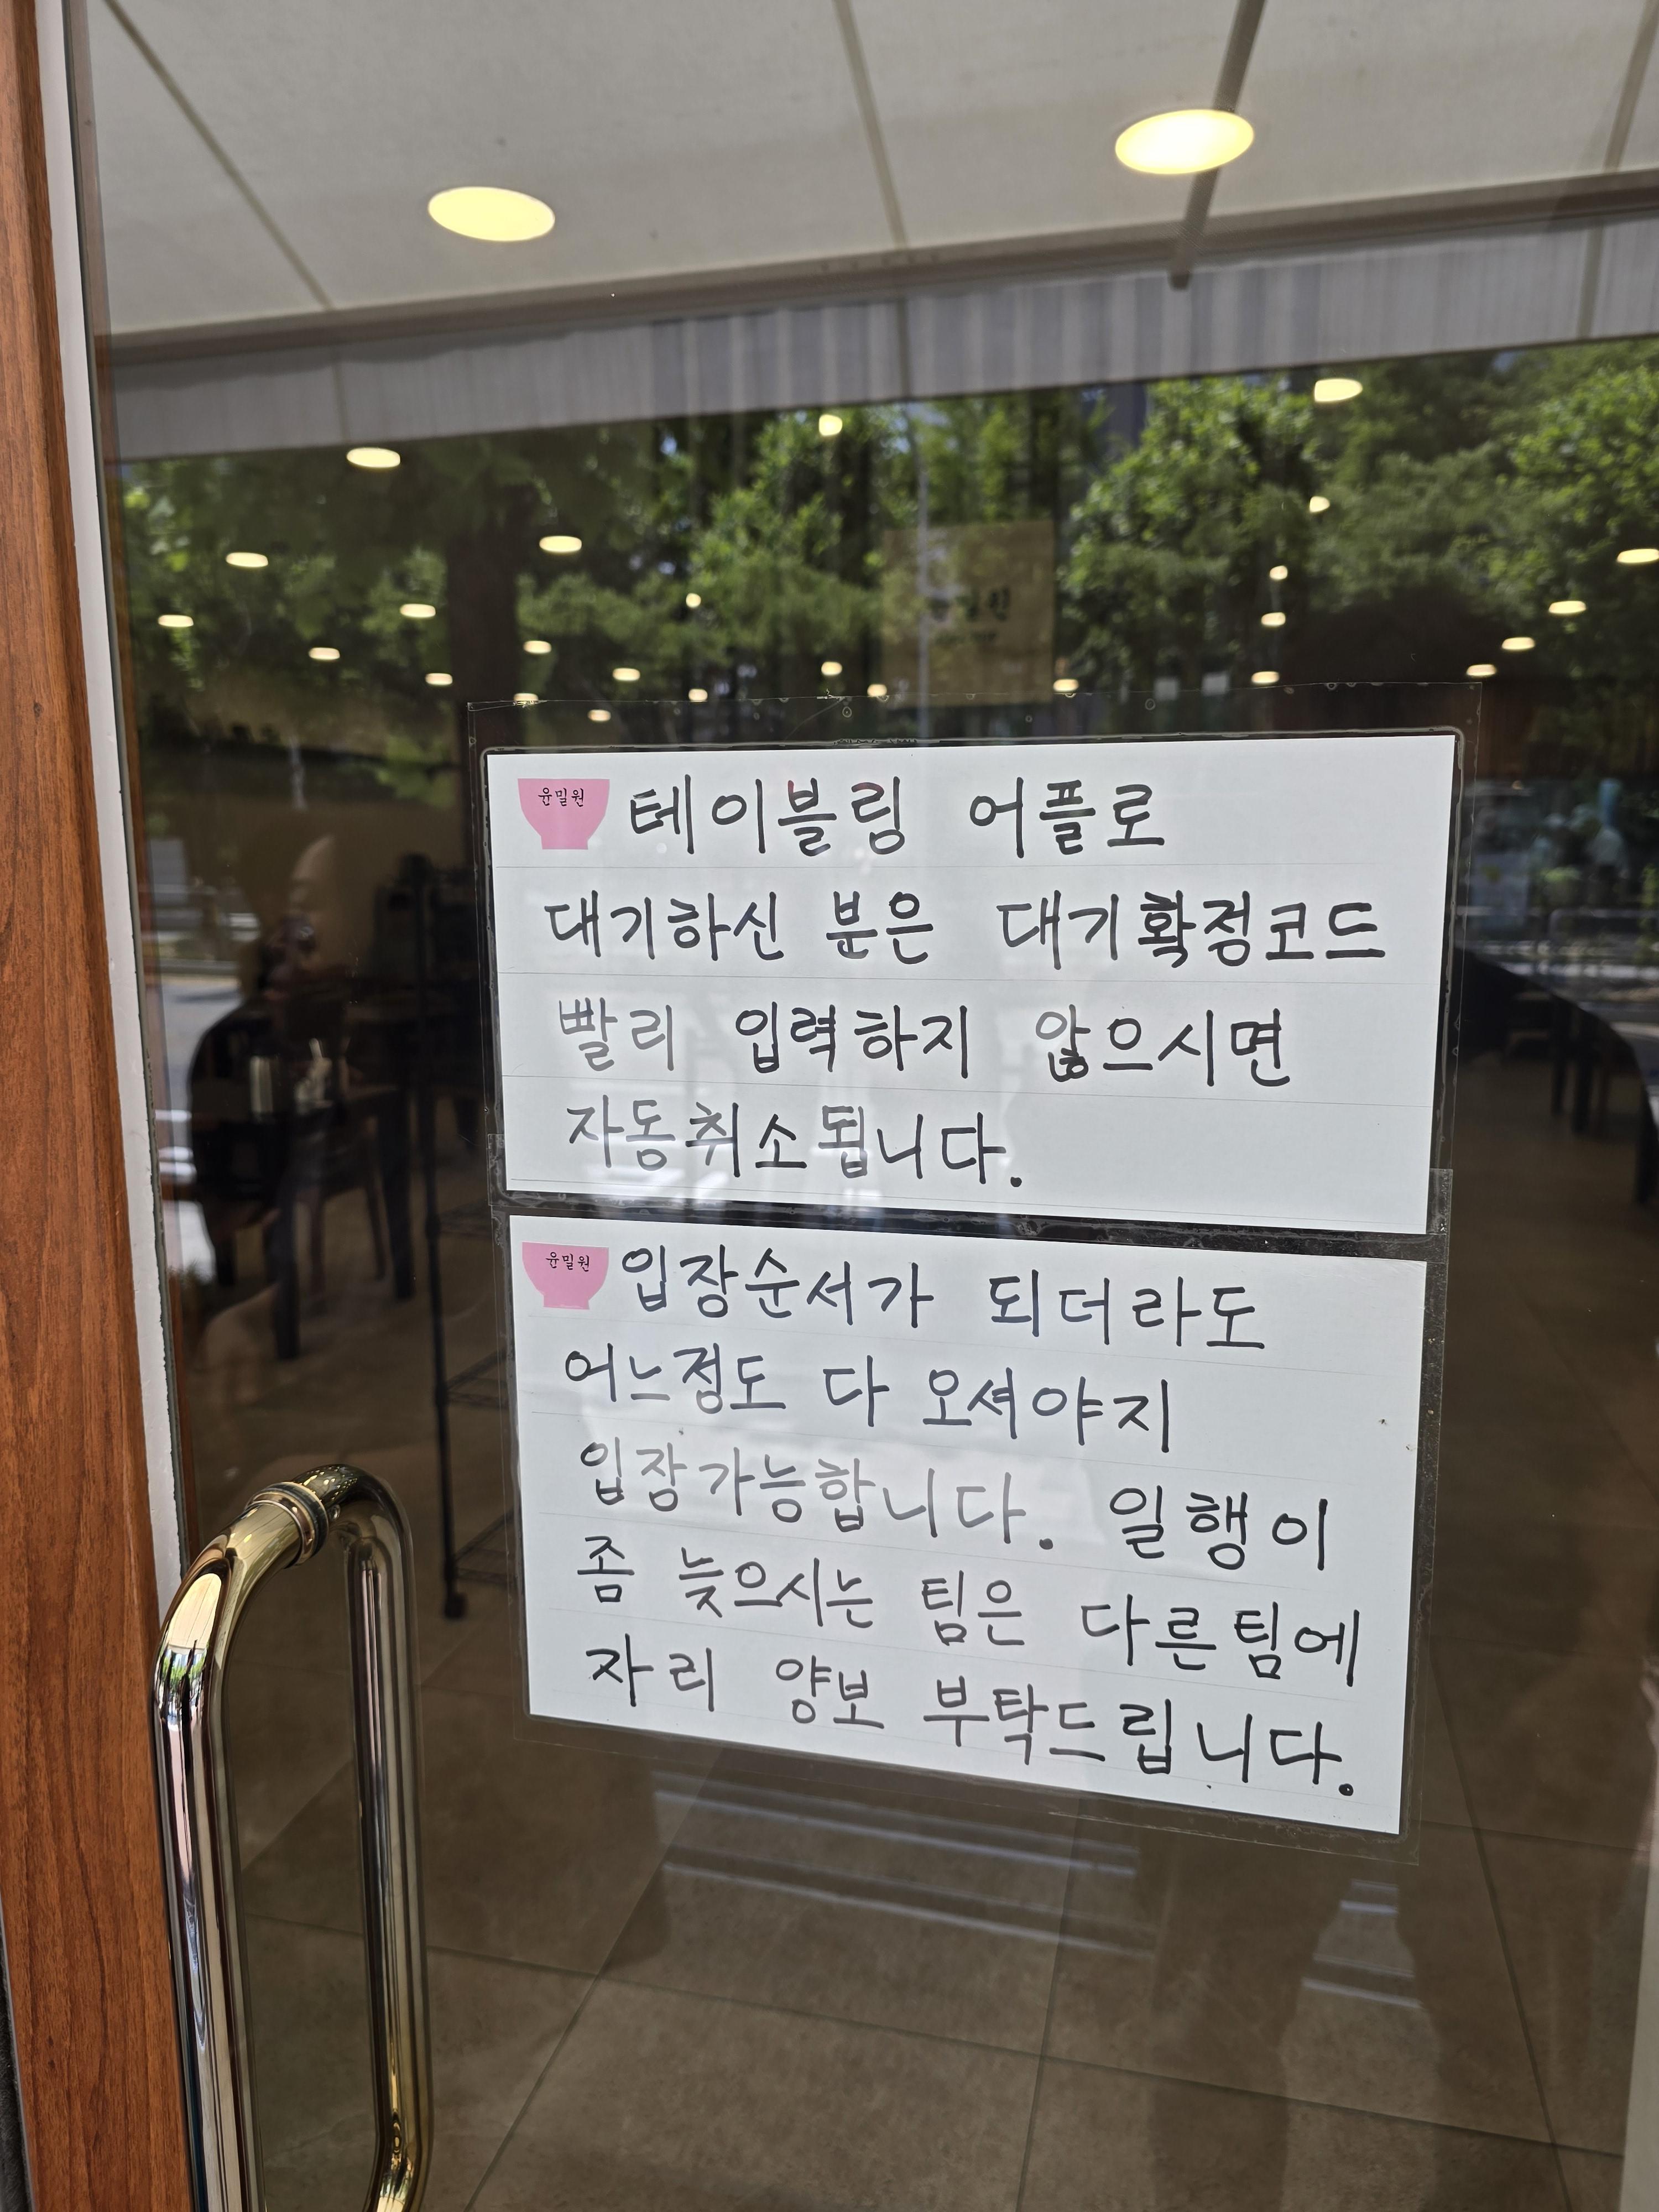 윤밀원
테이블링 어플로
대기하신 분은 대기확정코드
빨리 입력하지 않으시면
자동취소됩니다.
윤밀원
입장순서가 되더라도
어느정도 다 오셔야지
입장가능합니다. 일행이
좀 늦으시는 팀은 다른팀에
자리 양보 부탁드립니다.